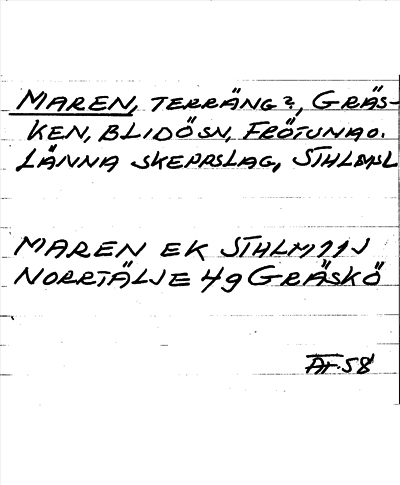 MAREN, TERRÄNG?, GRÄS-
KEN, BLIDÖ SN, FRÖTUNA O.
LÄNNA SKEPPSLAG, STHLMSL
MAREN EK STHLM 11J
NORRTÄLJE 4g GRÄSKÖ
ÄT-58